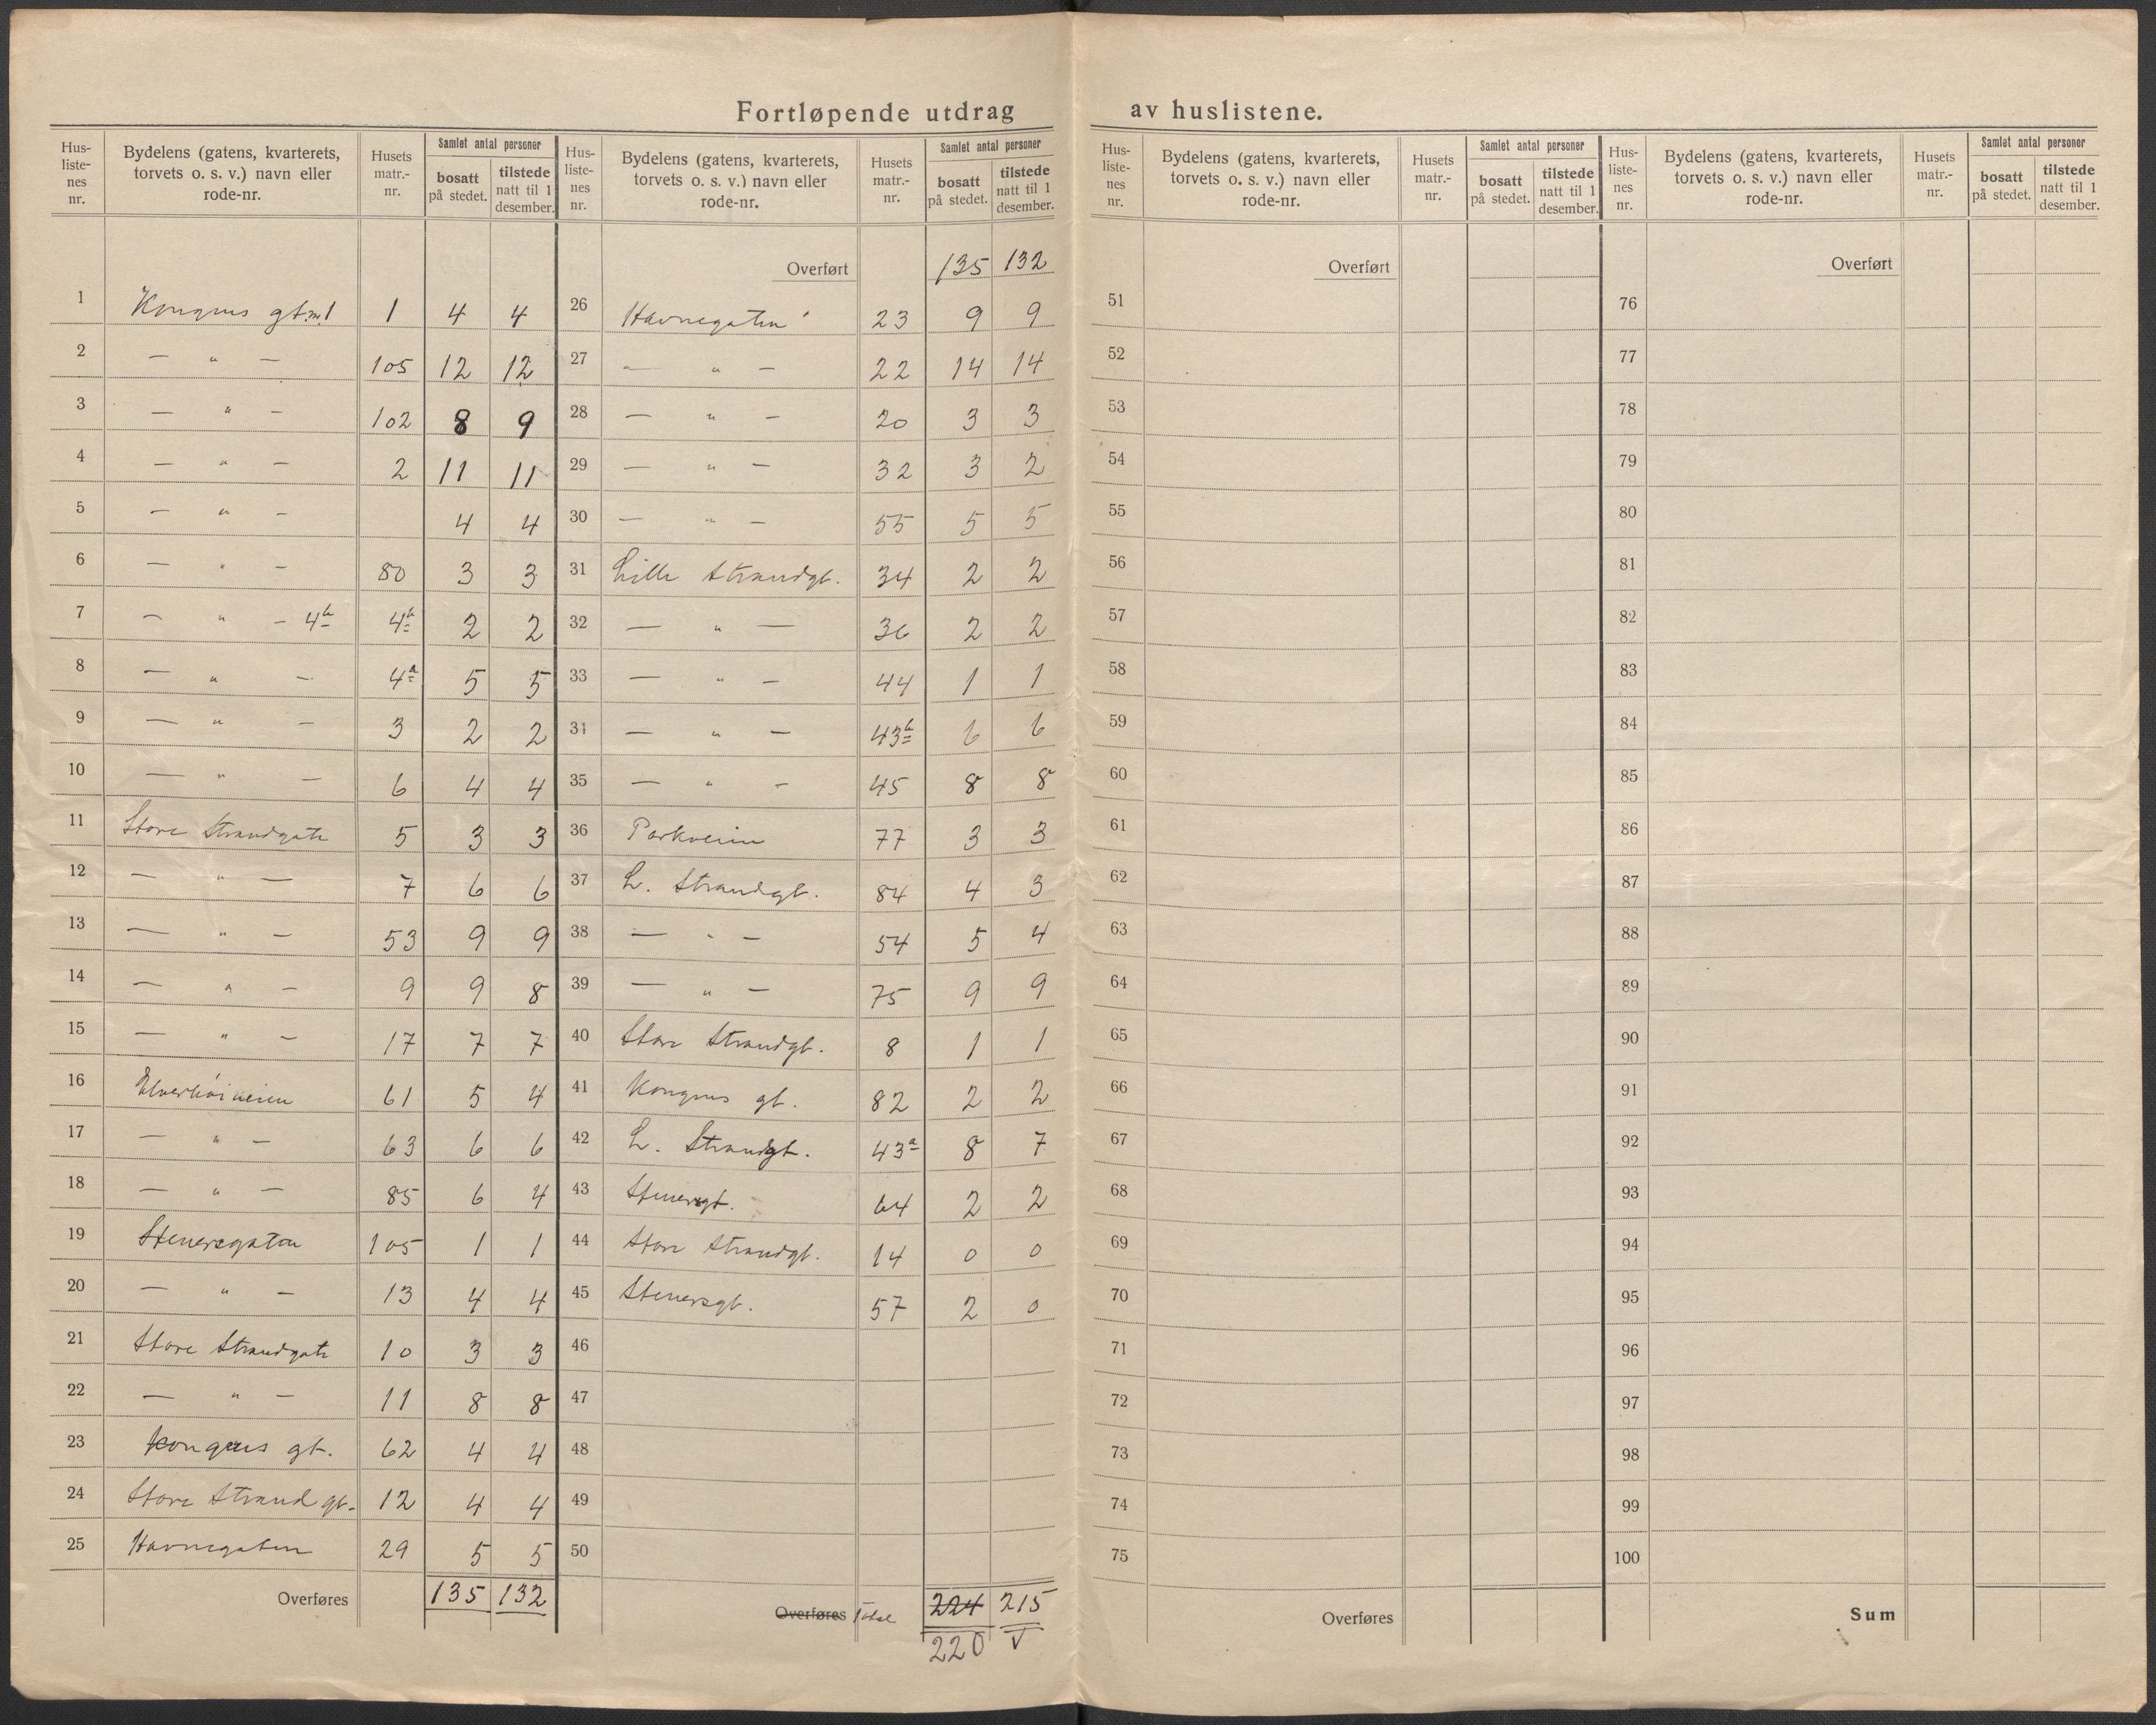 Fortløpende utdrag av huslistene.
Hus- liste- nes nr. | Bydelens (gatens, kvarterets, torvets o. s. v.) navn eller rode-nr. | Husets matr.- nr. | Samlet antal personer bosatt på stedet. | tilstede natt til 1 desember.
1 Kongens gt. 1 4 4
2 — " — 105 12 12
3 — " — 102 8 9
4 — " — 2 11 11
5 — " — 4 4
6 — " — 80 3 3
7 — " — 4b 4b 2 2
8 — " — 4a 5 5
9 — " — 3 2 2
10 — " — 6 4 4
11 Store Strandgate 5 3 3
12 — " — 7 6 6
13 — " — 53 9 9
14 — " — 9 9 8
15 — " — 17 7 7
16 Elverhøiveien 61 5 4
17 — " — 63 6 6
18 — " — 85 6 4
19 Stenersgaten 105 1 1
20 — " — 13 4 4
21 Store Strandgate 10 3 3
22 — " — 11 8 8
23 Kongens gt. 62 4 4
24 Store Strandgt. 12 4 4
25 Havnegaten 29 5 5
Overføres 135 132
Hus- liste- nes nr. | Bydelens (gatens, kvarterets, torvets o. s. v.) navn eller rode-nr. | Husets matr.- nr. | Samlet antal personer bosatt på stedet. | tilstede natt til 1 desember.
Overført 135 132
26 Havnegaten 23 9 9
27 — " — 22 14 14
28 — " — 20 3 3
29 — " — 32 3 2
30 — " — 55 5 5
31 Lille Strandgt. 34 2 2
32 — " — 36 2 2
33 — " — 44 1 1
34 — " — 43b 6 6
35 — " — 45 8 8
36 Parkveien 77 3 3
37 L. Strandgt. 84 4 3
38 — " — 54 5 4
39 — " — 75 9 9
40 Store Strandgt. 8 1 1
41 Kongens gt. 82 2 2
42 L. Strandgt. 43a 8 7
43 Stenersgt. 64 2 2
44 Store Strandgt. 14 0 0
45 Stenersgt. 57 2 0
46
47
48
49
50
Overføres Total 224 215
220 √
Hus- liste- nes nr. | Bydelens (gatens, kvarterets, torvets o. s. v.) navn eller rode-nr. | Husets matr.- nr. | Samlet antal personer bosatt på stedet. | tilstede natt til 1 desember.
Overført
51
52
53
54
55
56
57
58
59
60
61
62
63
64
65
66
67
68
69
70
71
72
73
74
75
Overføres
Hus- liste- nes nr. | Bydelens (gatens, kvarterets, torvets o. s. v.) navn eller rode-nr. | Husets matr.- nr. | Samlet antal personer bosatt på stedet. | tilstede natt til 1 desember.
Overført
76
77
78
79
80
81
82
83
84
85
86
87
88
89
90
91
92
93
94
95
96
97
98
99
100
Sum